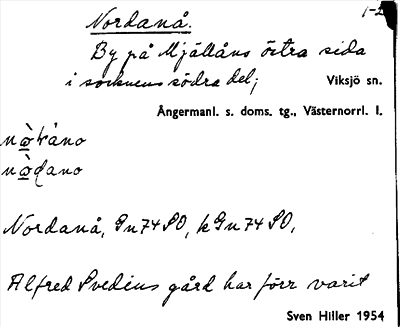 Nordanå. 1-2
By på Mjällåns östra sida
i socknens södra del; Viksjö sn.
Ångermanl. s. doms. tg., Västernorrl. l.
Nordanå, Gn74SO, kGn74SO,
Alfred Svedins gård har förr varit
Sven Hiller 1954